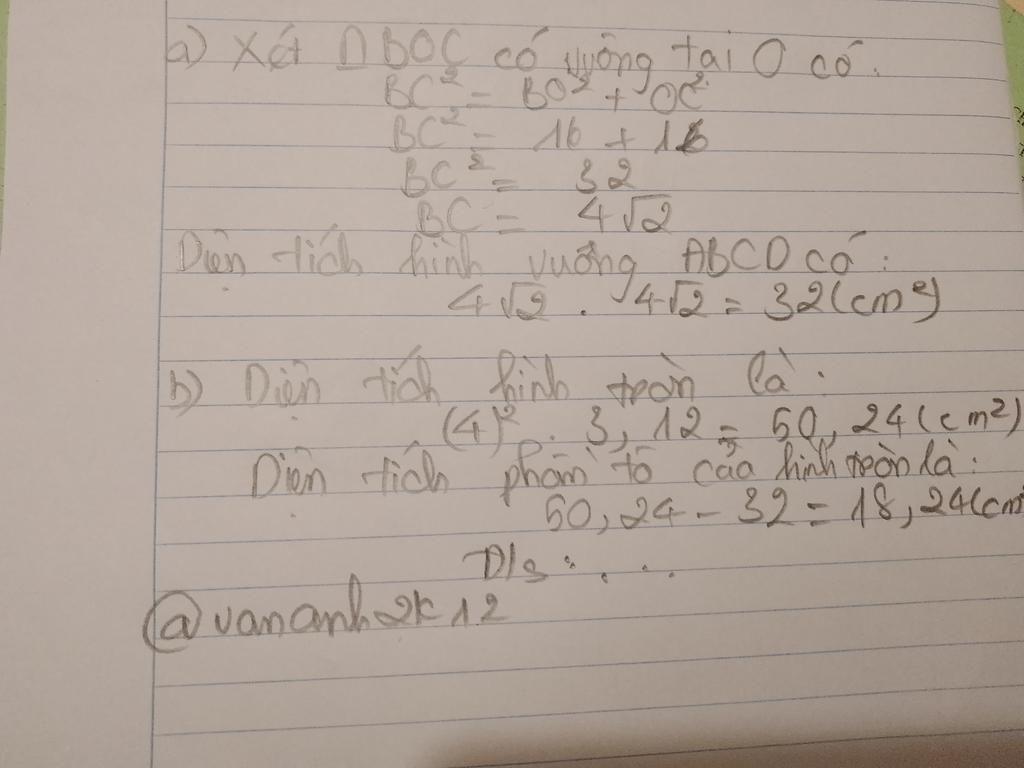 a) Xét ΔBOC có vuông tại O có.
BC² = BO² + OC²
BC² = 16 + 16
BC² = 32
BC = 4√2
Diện tích hình vuông ABCD có:
4√2 . 4√2 = 32(cm²)
b) Diện tích hình tròn là:
(4)² . 3,12 = 50,24(cm²)
Diện tích phần tô của hình tròn là:
50,24 - 32 = 18,24(cm
Đ/s: ....
@vananh2k12